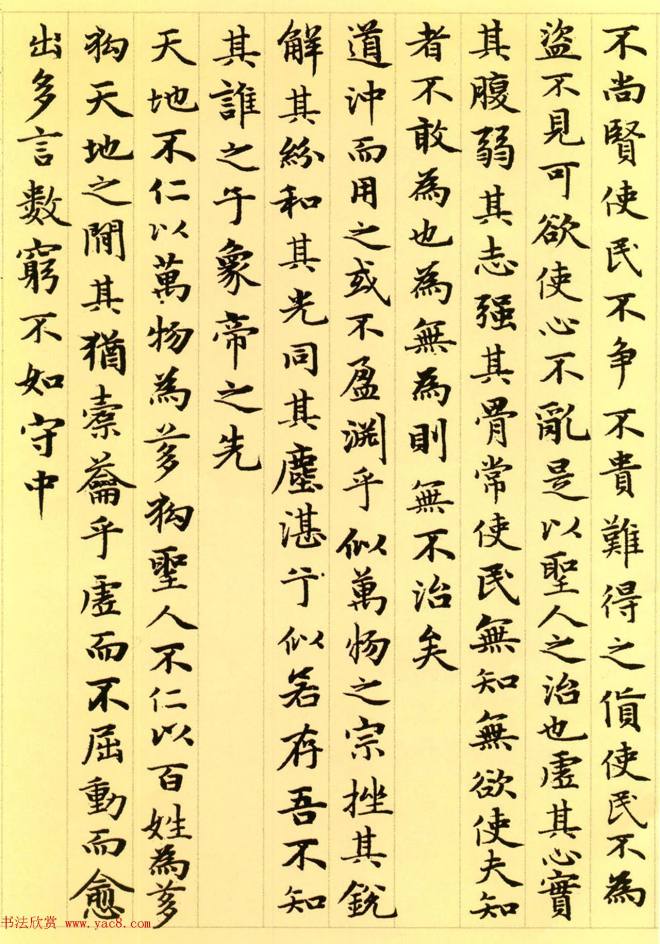 不尚賢使民不争不貴難得之貨使民不為
盜不見可欲使心不亂是以聖人之治也虛其心實
其腹弱其志强其骨常使民無知無欲使夫知
者不敢為也為無為則無不治矣
道沖而用之或不盈淵乎似萬物之宗挫其銳
解其紛和其光同其塵湛兮似若存吾不知
其誰之子象帝之先
天地不仁以萬物為芻狗聖人不仁以百姓為芻
狗天地之間其猶橐籥乎虛而不屈動而愈
出多言数窮不如守中
书法欣赏 www.yac8.com